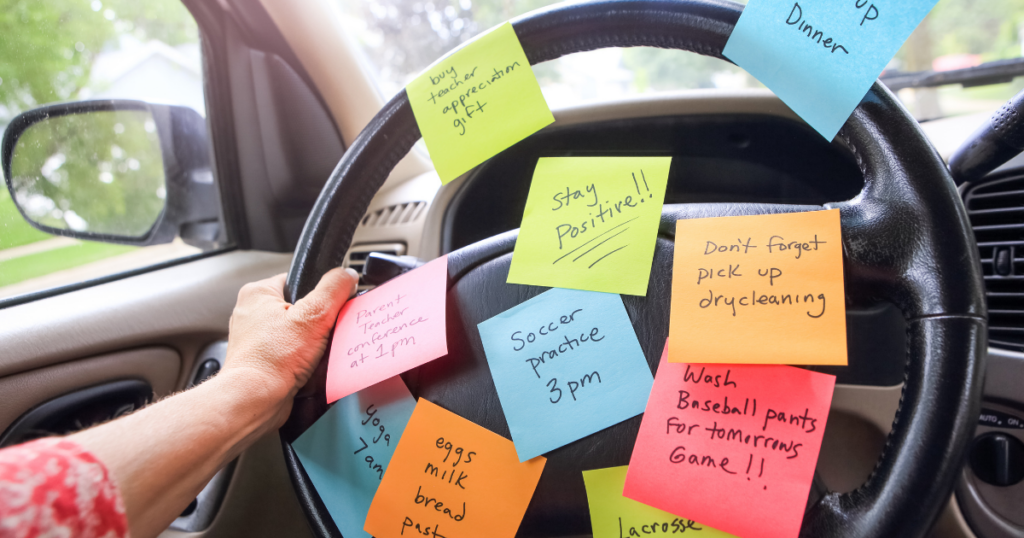 up
Dinner
buy
teacher
appreciation
gift
Stay
Positive!!
Don't forget
pick up
drycleaning
Parent
Teacher
conference
at 1pm
Soccer
practice
3pm
Wash
Baseball pants
for tomorrows
Game!!
yoga
7am
eggs
milk
bread
Lacrosse
AUTO
ON